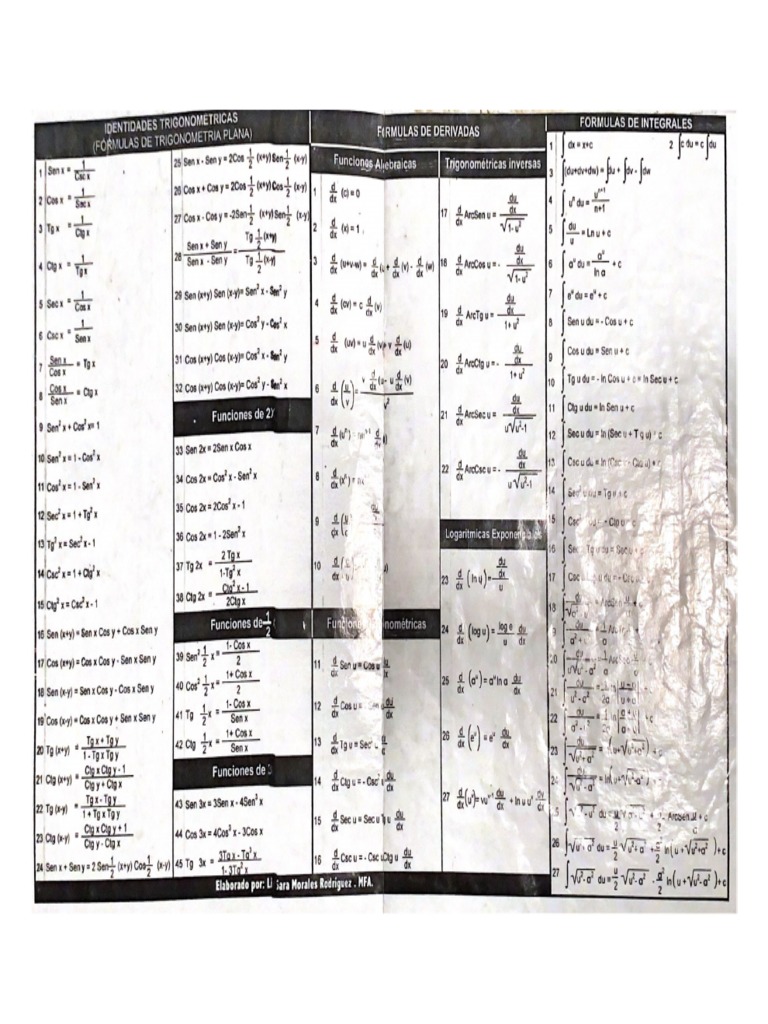 IDENTIDADES TRIGONOMÉTRICAS
(FÓRMULAS DE TRIGONOMETRIA PLANA)
1 Sen x = 1/Csc x
2 Cos x = 1/Sec x
3 Tg x = 1/Ctg x
4 Ctg x = 1/Tg x
5 Sec x = 1/Cos x
6 Csc x = 1/Sen x
7 Sen x/Cos x = Tg x
8 Cos x/Sen x = Ctg x
9 Sen² x + Cos² x = 1
10 Sen² x = 1 - Cos² x
11 Cos² x = 1 - Sen² x
12 Sec² x = 1 + Tg² x
13 Tg² x = Sec² x - 1
14 Csc² x = 1 + Ctg² x
15 Ctg² x = Csc² x - 1
16 Sen (x+y) = Sen x Cos y + Cos x Sen y
17 Cos (x+y) = Cos x Cos y - Sen x Sen y
18 Sen (x-y) = Sen x Cos y - Cos x Sen y
19 Cos (x-y) = Cos x Cos y + Sen x Sen y
20 Tg (x+y) = Tg x + Tg y / 1 - Tg x Tg y
21 Ctg (x+y) = Ctg x Ctg y - 1 / Ctg y + Ctg x
22 Tg (x-y) = Tg x - Tg y / 1 + Tg x Tg y
23 Ctg (x-y) = Ctg x Ctg y + 1 / Ctg y - Ctg x
24 Sen x + Sen y = 2 Sen 1/2 (x+y) Cos 1/2 (x-y)
25 Sen x - Sen y = 2Cos 1/2 (x+y) Sen 1/2 (x-y)
26 Cos x + Cos y = 2Cos 1/2 (x+y) Cos 1/2 (x-y)
27 Cos x - Cos y = -2Sen 1/2 (x+y) Sen 1/2 (x-y)
28 Sen x + Sen y / Sen x - Sen y = Tg 1/2 (x+y) / Tg 1/2 (x-y)
29 Sen (x+y) Sen (x-y)= Sen² x - Sen² y
30 Sen (x+y) Sen (x-y)= Cos² y - Cos² x
31 Cos (x+y) Cos (x-y)= Cos² x - Sen² y
32 Cos (x+y) Cos (x-y)= Cos² y - Sen² x
Funciones de 2x
33 Sen 2x = 2Sen x Cos x
34 Cos 2x = Cos² x - Sen² x
35 Cos 2x = 2Cos² x - 1
36 Cos 2x = 1 - 2Sen² x
37 Tg 2x = 2 Tg x / 1-Tg² x
38 Ctg 2x = Ctg² x - 1 / 2Ctg x
Funciones de 1/2
39 Sen² 1/2 x = 1- Cos x / 2
40 Cos² 1/2 x = 1+ Cos x / 2
41 Tg 1/2 x = 1- Cos x / Sen x
42 Ctg 1/2 x = 1+ Cos x / Sen x
Funciones de 3
43 Sen 3x = 3Sen x - 4Sen³ x
44 Cos 3x = 4Cos³ x - 3Cos x
45 Tg 3x = 3Tg x - Tg³ x / 1-3Tg² x
FORMULAS DE DERIVADAS
Funciones Algebraicas
1 d/dx (c) = 0
2 d/dx (x) = 1
3 d/dx (u+v-w) = d/dx (u + d/dx (v) - d/dx (w)
4 d/dx (cv) = c d/dx (v)
5 d/dx (uv) = u d/dx (v)+ v d/dx (u)
6 d/dx (u/v) = v d/dx (u- u d/dx (v) / v²
7 d/dx
8 d/dx
9
10 d/dx
Funciones Trigonométricas
11 d/dx Sen u = Cos u du/dx
12 d/dx Cos u = - Sen u du/dx
13 d/dx Tg u = Sec² u du/dx
14 d/dx Ctg u = - Csc² u du/dx
15 d/dx Sec u = Sec u Tg u du/dx
16 d/dx Csc u = - Csc u Ctg u du/dx
Trigonométricas inversas
17 d/dx ArcSen u = du/dx / √1- u²
18 d/dx ArcCos u = - du/dx / √1- u²
19 d/dx ArcTg u = du/dx / 1+ u²
20 d/dx ArcCtg u = - du/dx / 1+ u²
21 d/dx ArcSec u = du/dx / u√u²-1
22 d/dx ArcCsc u = - du/dx / u√u²-1
Logarítmicas Exponenciales
23 d/dx (ln u) = du/dx / u
24 d/dx (log u) = log e / u du/dx
25 d/dx (aᵘ) = aᵘ ln a du/dx
26 d/dx (eᵘ) = eᵘ du/dx
27 d/dx (uᵛ) = vuᵛ⁻¹ du/dx + ln u uᵛ dv/dx
FORMULAS DE INTEGRALES
1 ∫ dx = x+c 2 ∫ c du = c ∫ du
3 ∫ (du+dv+dw) = ∫ du + ∫ dv - ∫ dw
4 ∫ uⁿ du = uⁿ⁺¹ / n+1
5 ∫ du/u = Ln u + c
6 ∫ aᵘ du = aᵘ / ln a + c
7 ∫ eᵘ du = eᵘ + c
8 ∫ Sen u du = - Cos u + c
9 ∫ Cos u du = Sen u + c
10 ∫ Tg u du = - ln Cos u + c = ln Sec u + c
11 ∫ Ctg u du = ln Sen u + c
12 ∫ Sec u du = ln (Sec u + Tg u) + c
13 ∫ Csc u du = ln (Csc u - Ctg u) + c
14 ∫ Sec² u du = Tg u + c
15 ∫ Csc² u du = - Ctg u + c
16 ∫ Sec u Tg u du = Sec u + c
17
18
19
20
21
22
23
24
25
26 ∫ √u²+a² du = u/2 √u²+a² + a²/2 ln ( u + √u²+a² ) + c
27 ∫ √u²-a² du = u/2 √u²-a² - a²/2 ln ( u + √u²-a² ) + c
Elaborado por: Sara Morales Rodriguez . MFA.